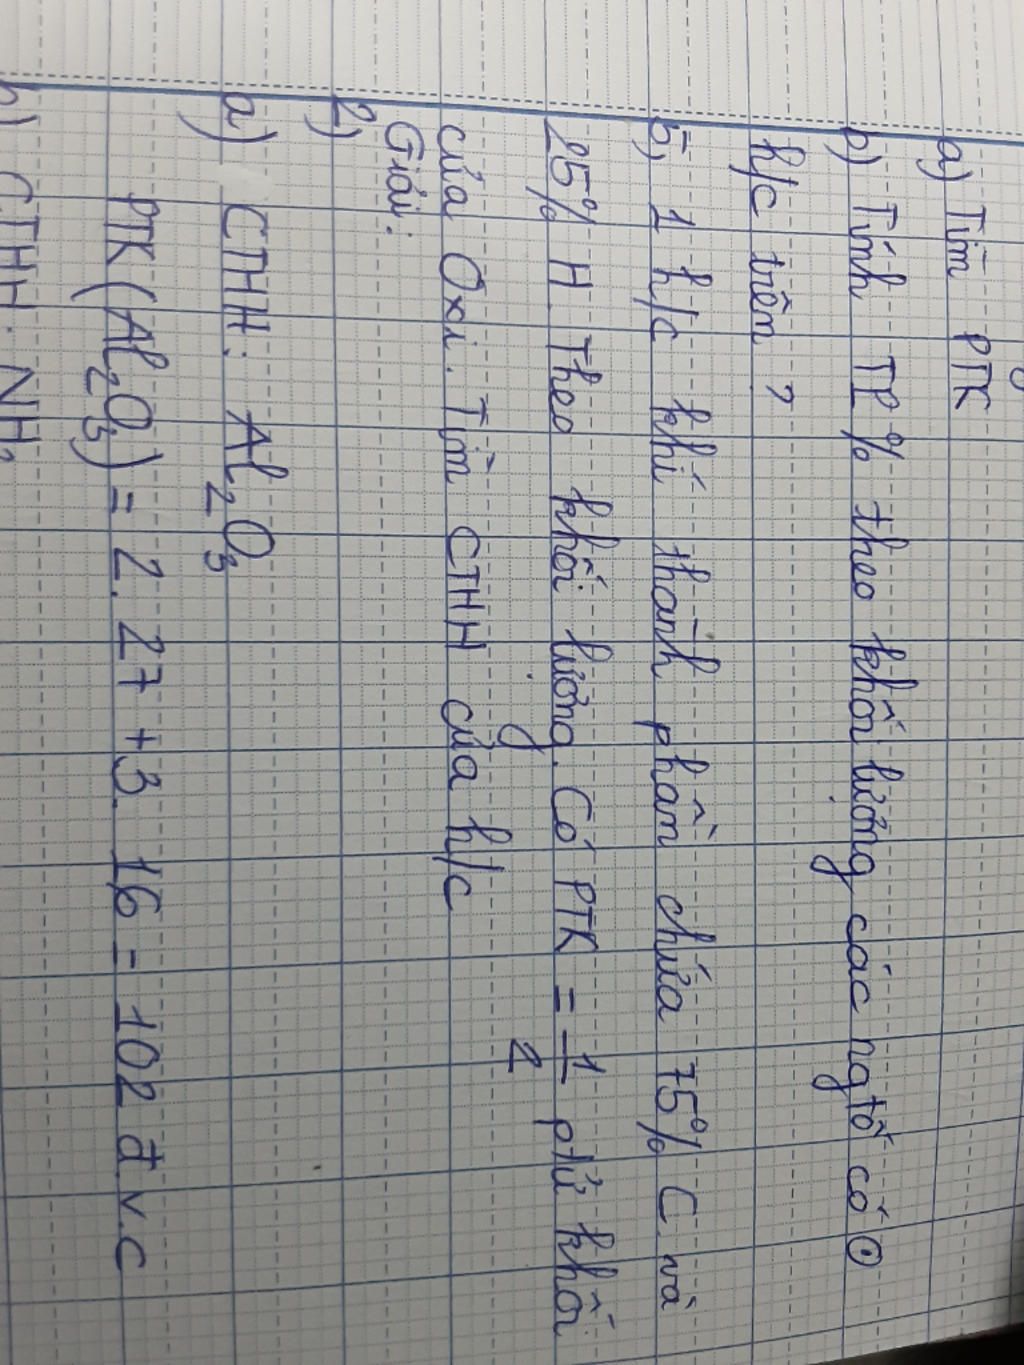 a) Tìm PTK
b) Tính TP % theo khối lượng các ngtố có ⊙
h/c trên ?
5, 1 h/c khí thành phần chứa 75% C và
25% H. Theo khối lượng. Có PTK = 1/2 ptử khối
của Oxi. Tìm CTHH của h/c
Giải:
2)
a) CTHH: Al2O3
PTK (Al2O3) = 2. 27 + 3. 16 = 102 đ.v.C
b) CTHH: NH3